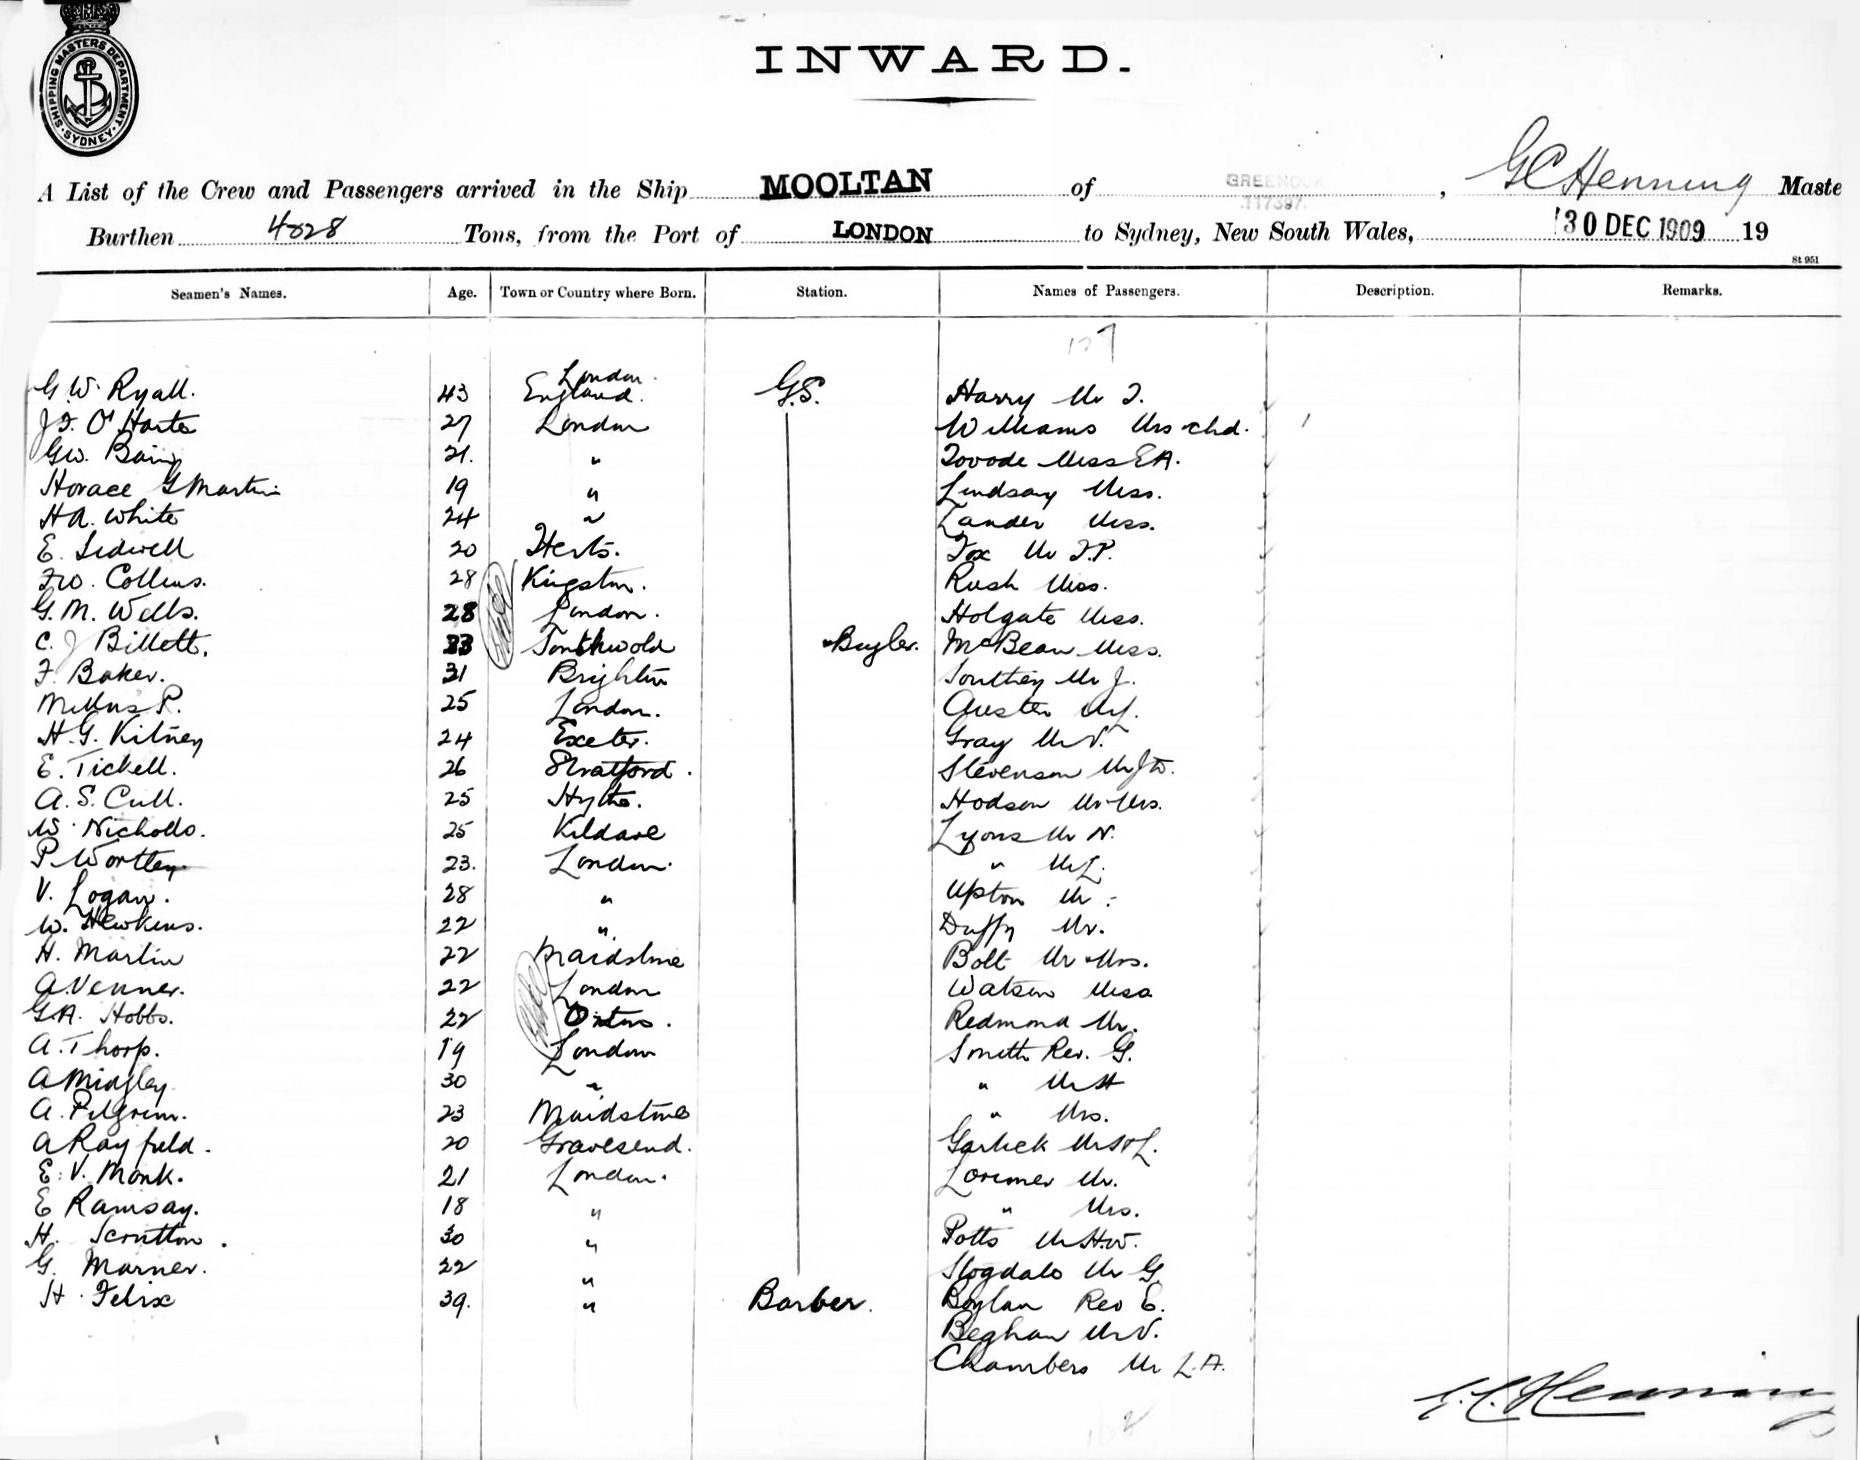 SHIPPING MASTERS DEPARTMENT
SYDNEY
INWARD.
A List of the Crew and Passengers arrived in the Ship MOOLTAN of GREENOCK, G C Henning Maste
117397
Burthen 4828 Tons, from the Port of LONDON to Sydney, New South Wales, 30 DEC 1909 19
St 951
Seamen's Names. Age. Town or Country where Born. Station. Names of Passengers. Description. Remarks.
127
London.
G. W. Ryall. 43 England. G.S. Harry Mr T.
J F. O'Harte 27 London Williams Mrs & chd.
GW. Bain 21. " Miss E A.
Horace G Martin 19 " Lindsay Miss.
H A. White 24 " Lander Miss.
E. Sidwell 20 Herts. Fox Mr F.P.
F W. Collins. 28 Kingston. Rush Miss.
G. M. Wells. 28 London. Holgate Miss.
C. J Billett. 33 Southwold Bugler. McBean Miss.
F. Baker. 31 Brighton Southey Mr J.
P. 25 London. Austen
H. G. Kitney 24 Exeter. Gray Mr V.
E. Tickell. 26 Stratford. Stevenson Mr J W.
A. S. Cull. 25 Hythe. Hodson Mr & Mrs.
W. Nicholls. 25 Kildare Lyons Mr N.
P. Wortley 23. London. " Mr L.
V. Logan. 28 " Upton Mr.
W. Hewkins. 22 " Duffy Mr.
H. Martin 22 Maidstone Bolt Mr & Mrs.
A. Venner. 22 London Watson Miss
G.A. Hobbs. 22 Redmond Mr.
A. Thorp. 19 London Smith Rev. G.
A Midgley 30 " " Mr H
A. Pilgrim. 23 Maidstone " Mrs.
A Rayfield. 20 Gravesend. Garlick Mr
E. V. Monk. 21 London. Lorimer Mr.
E Ramsay. 18 " " Mrs.
H. Scrutton. 30 " Potts Mr H.W.
G. Marner. 22 " Slogdale Mr G.
H. Felix 39. " Barber. Boylan Rev E.
Beghan Mr V.
Chambers Mr L.A.
G. C. Henning